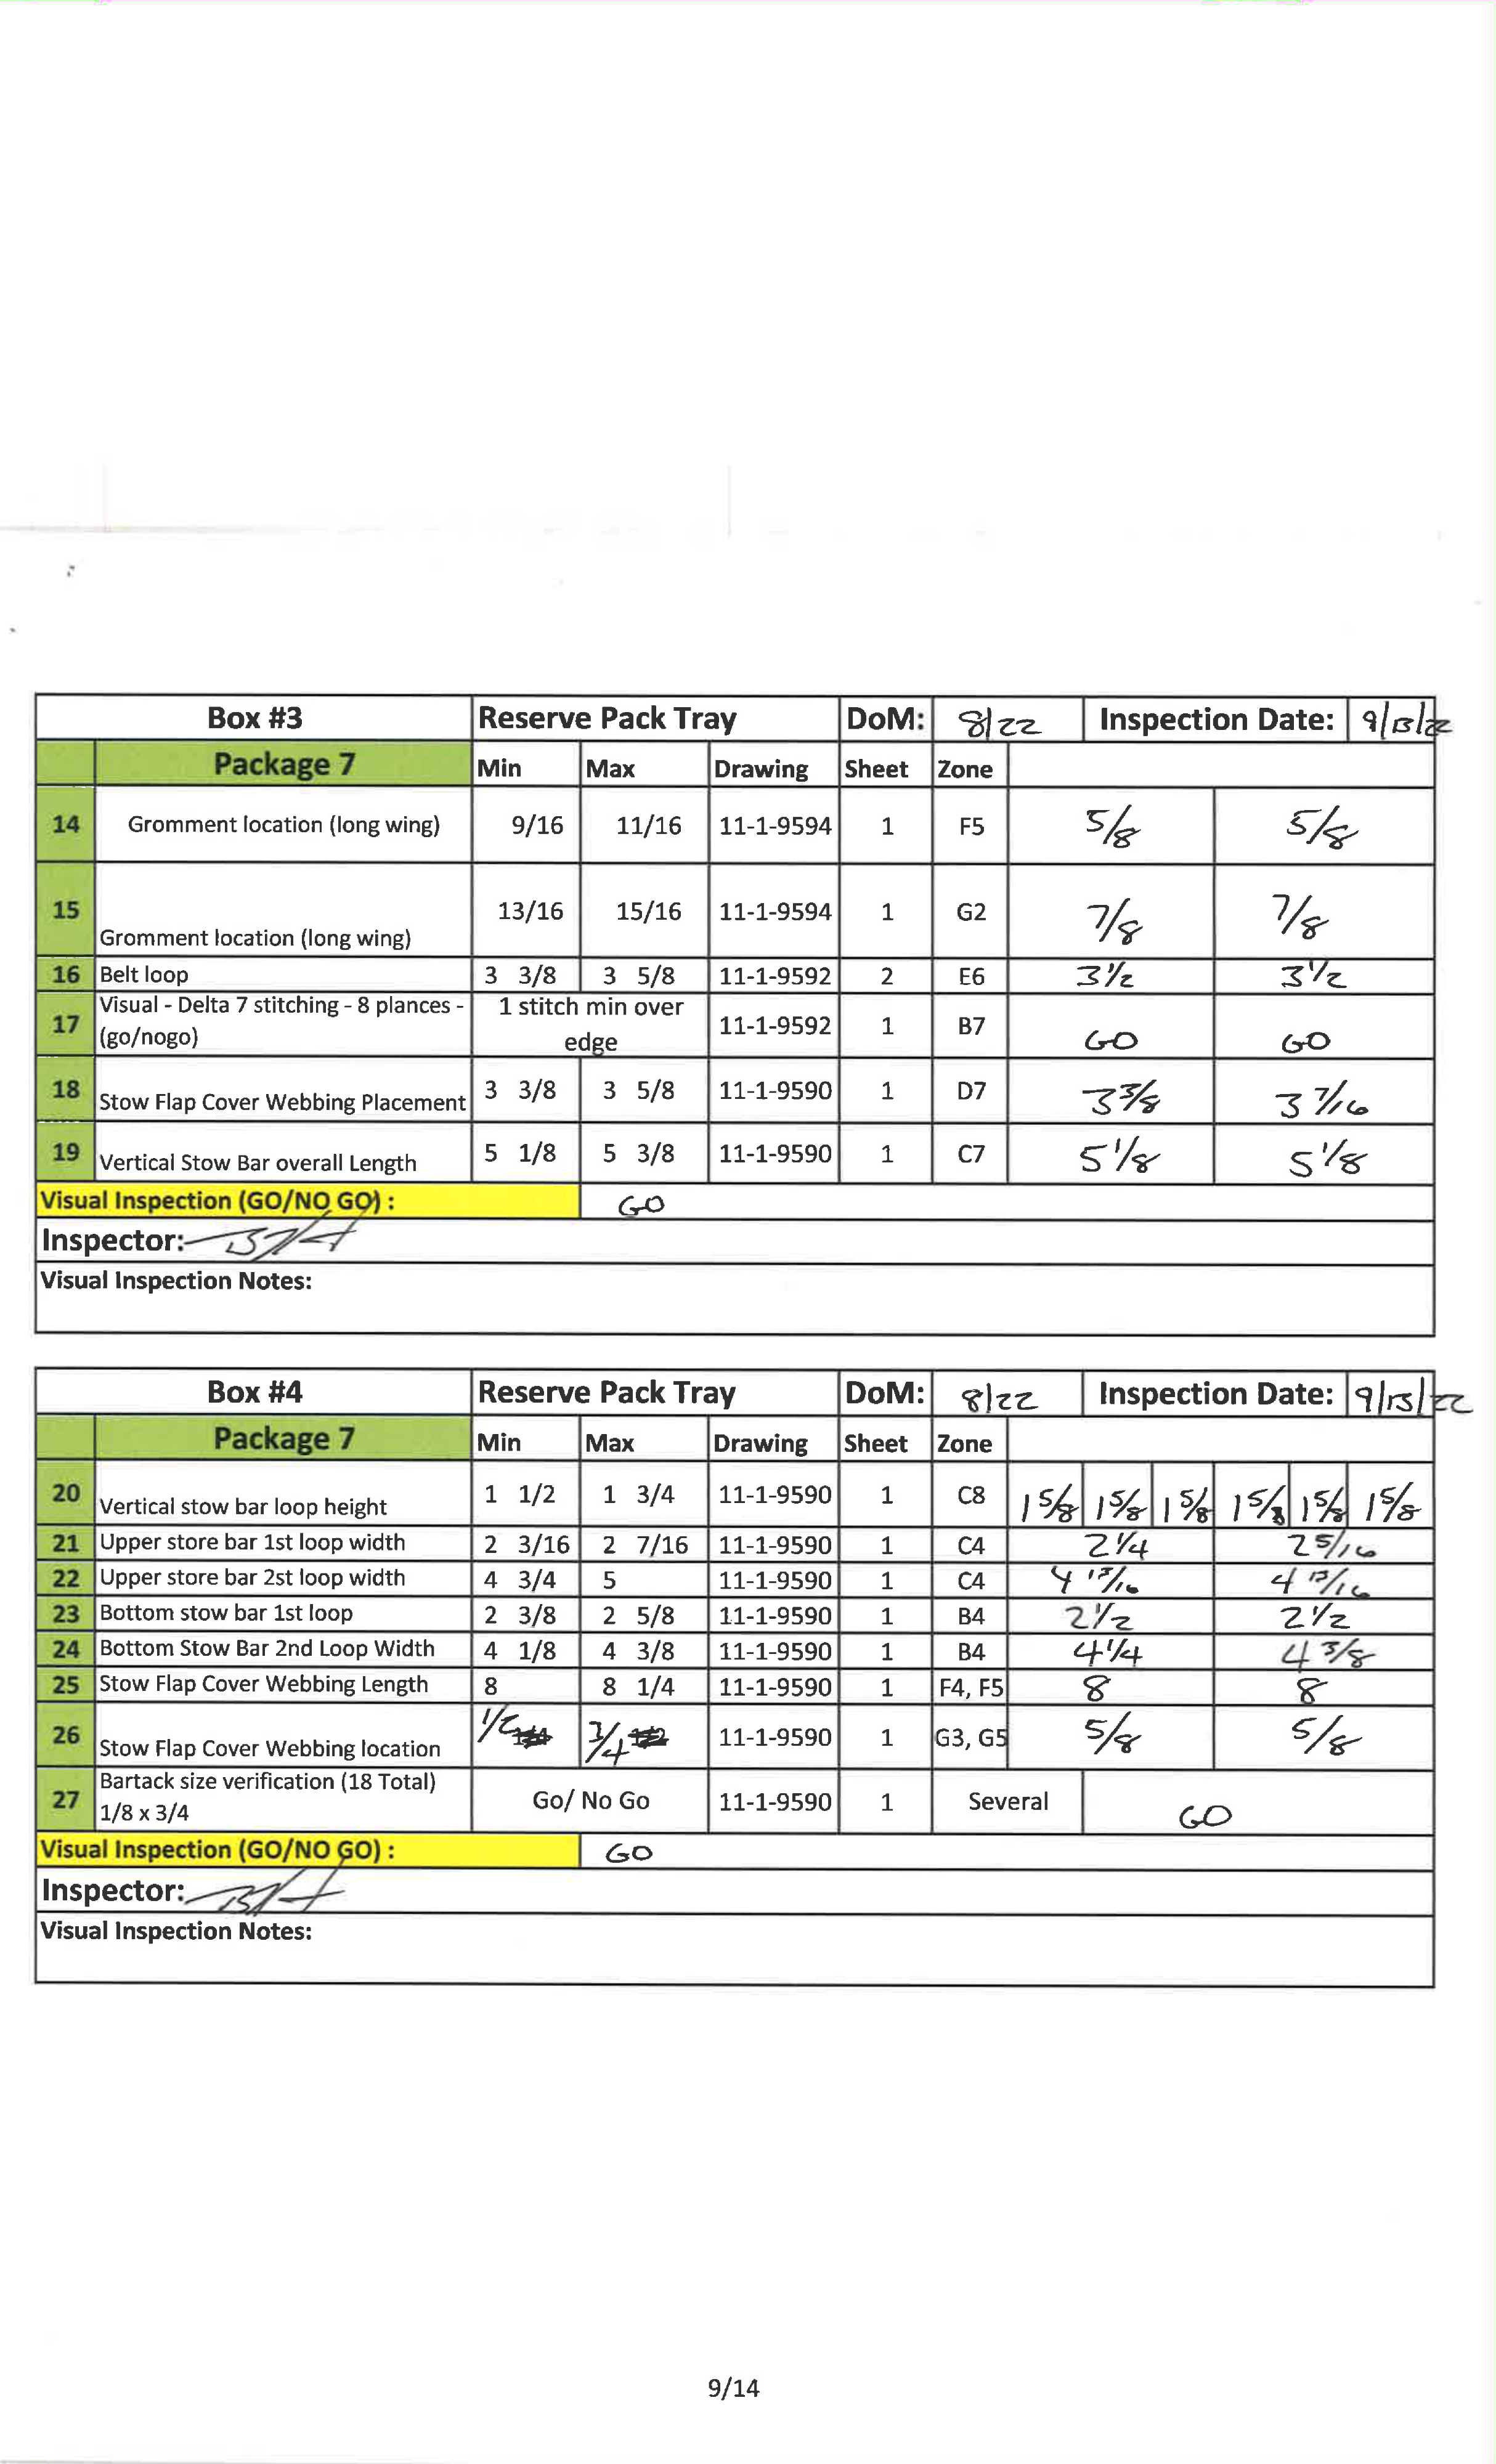 Box #3 Reserve Pack Tray DoM: 8/22 Inspection Date: 9/13/22
Package 7 Min Max Drawing Sheet Zone
14 Gromment location (long wing) 9/16 11/16 11-1-9594 1 F5 5/8 5/8
15 Gromment location (long wing) 13/16 15/16 11-1-9594 1 G2 7/8 7/8
16 Belt loop 3 3/8 3 5/8 11-1-9592 2 E6 3 1/2 3 1/2
17 Visual - Delta 7 stitching - 8 plances - 1 stitch min over
(go/nogo) edge 11-1-9592 1 B7 GO GO
18 Stow Flap Cover Webbing Placement 3 3/8 3 5/8 11-1-9590 1 D7 3 3/8 3 7/16
19 Vertical Stow Bar overall Length 5 1/8 5 3/8 11-1-9590 1 C7 5 1/8 5 1/8
Visual Inspection (GO/NO GO) : GO
Inspector:
Visual Inspection Notes:
Box #4 Reserve Pack Tray DoM: 8/22 Inspection Date: 9/13/22
Package 7 Min Max Drawing Sheet Zone
20 Vertical stow bar loop height 1 1/2 1 3/4 11-1-9590 1 C8 1 5/8 1 5/8 1 5/8 1 5/8 1 5/8 1 5/8
21 Upper store bar 1st loop width 2 3/16 2 7/16 11-1-9590 1 C4 2 1/4 2 5/16
22 Upper store bar 2st loop width 4 3/4 5 11-1-9590 1 C4 4 13/16 4 13/16
23 Bottom stow bar 1st loop 2 3/8 2 5/8 11-1-9590 1 B4 2 1/2 2 1/2
24 Bottom Stow Bar 2nd Loop Width 4 1/8 4 3/8 11-1-9590 1 B4 4 1/4 4 3/8
25 Stow Flap Cover Webbing Length 8 8 1/4 11-1-9590 1 F4, F5 8 8
26 Stow Flap Cover Webbing location 1/2 3/4 11-1-9590 1 G3, G5 5/8 5/8
27 Bartack size verification (18 Total)
1/8 x 3/4 Go/ No Go 11-1-9590 1 Several GO
Visual Inspection (GO/NO GO) : GO
Inspector:
Visual Inspection Notes:
9/14